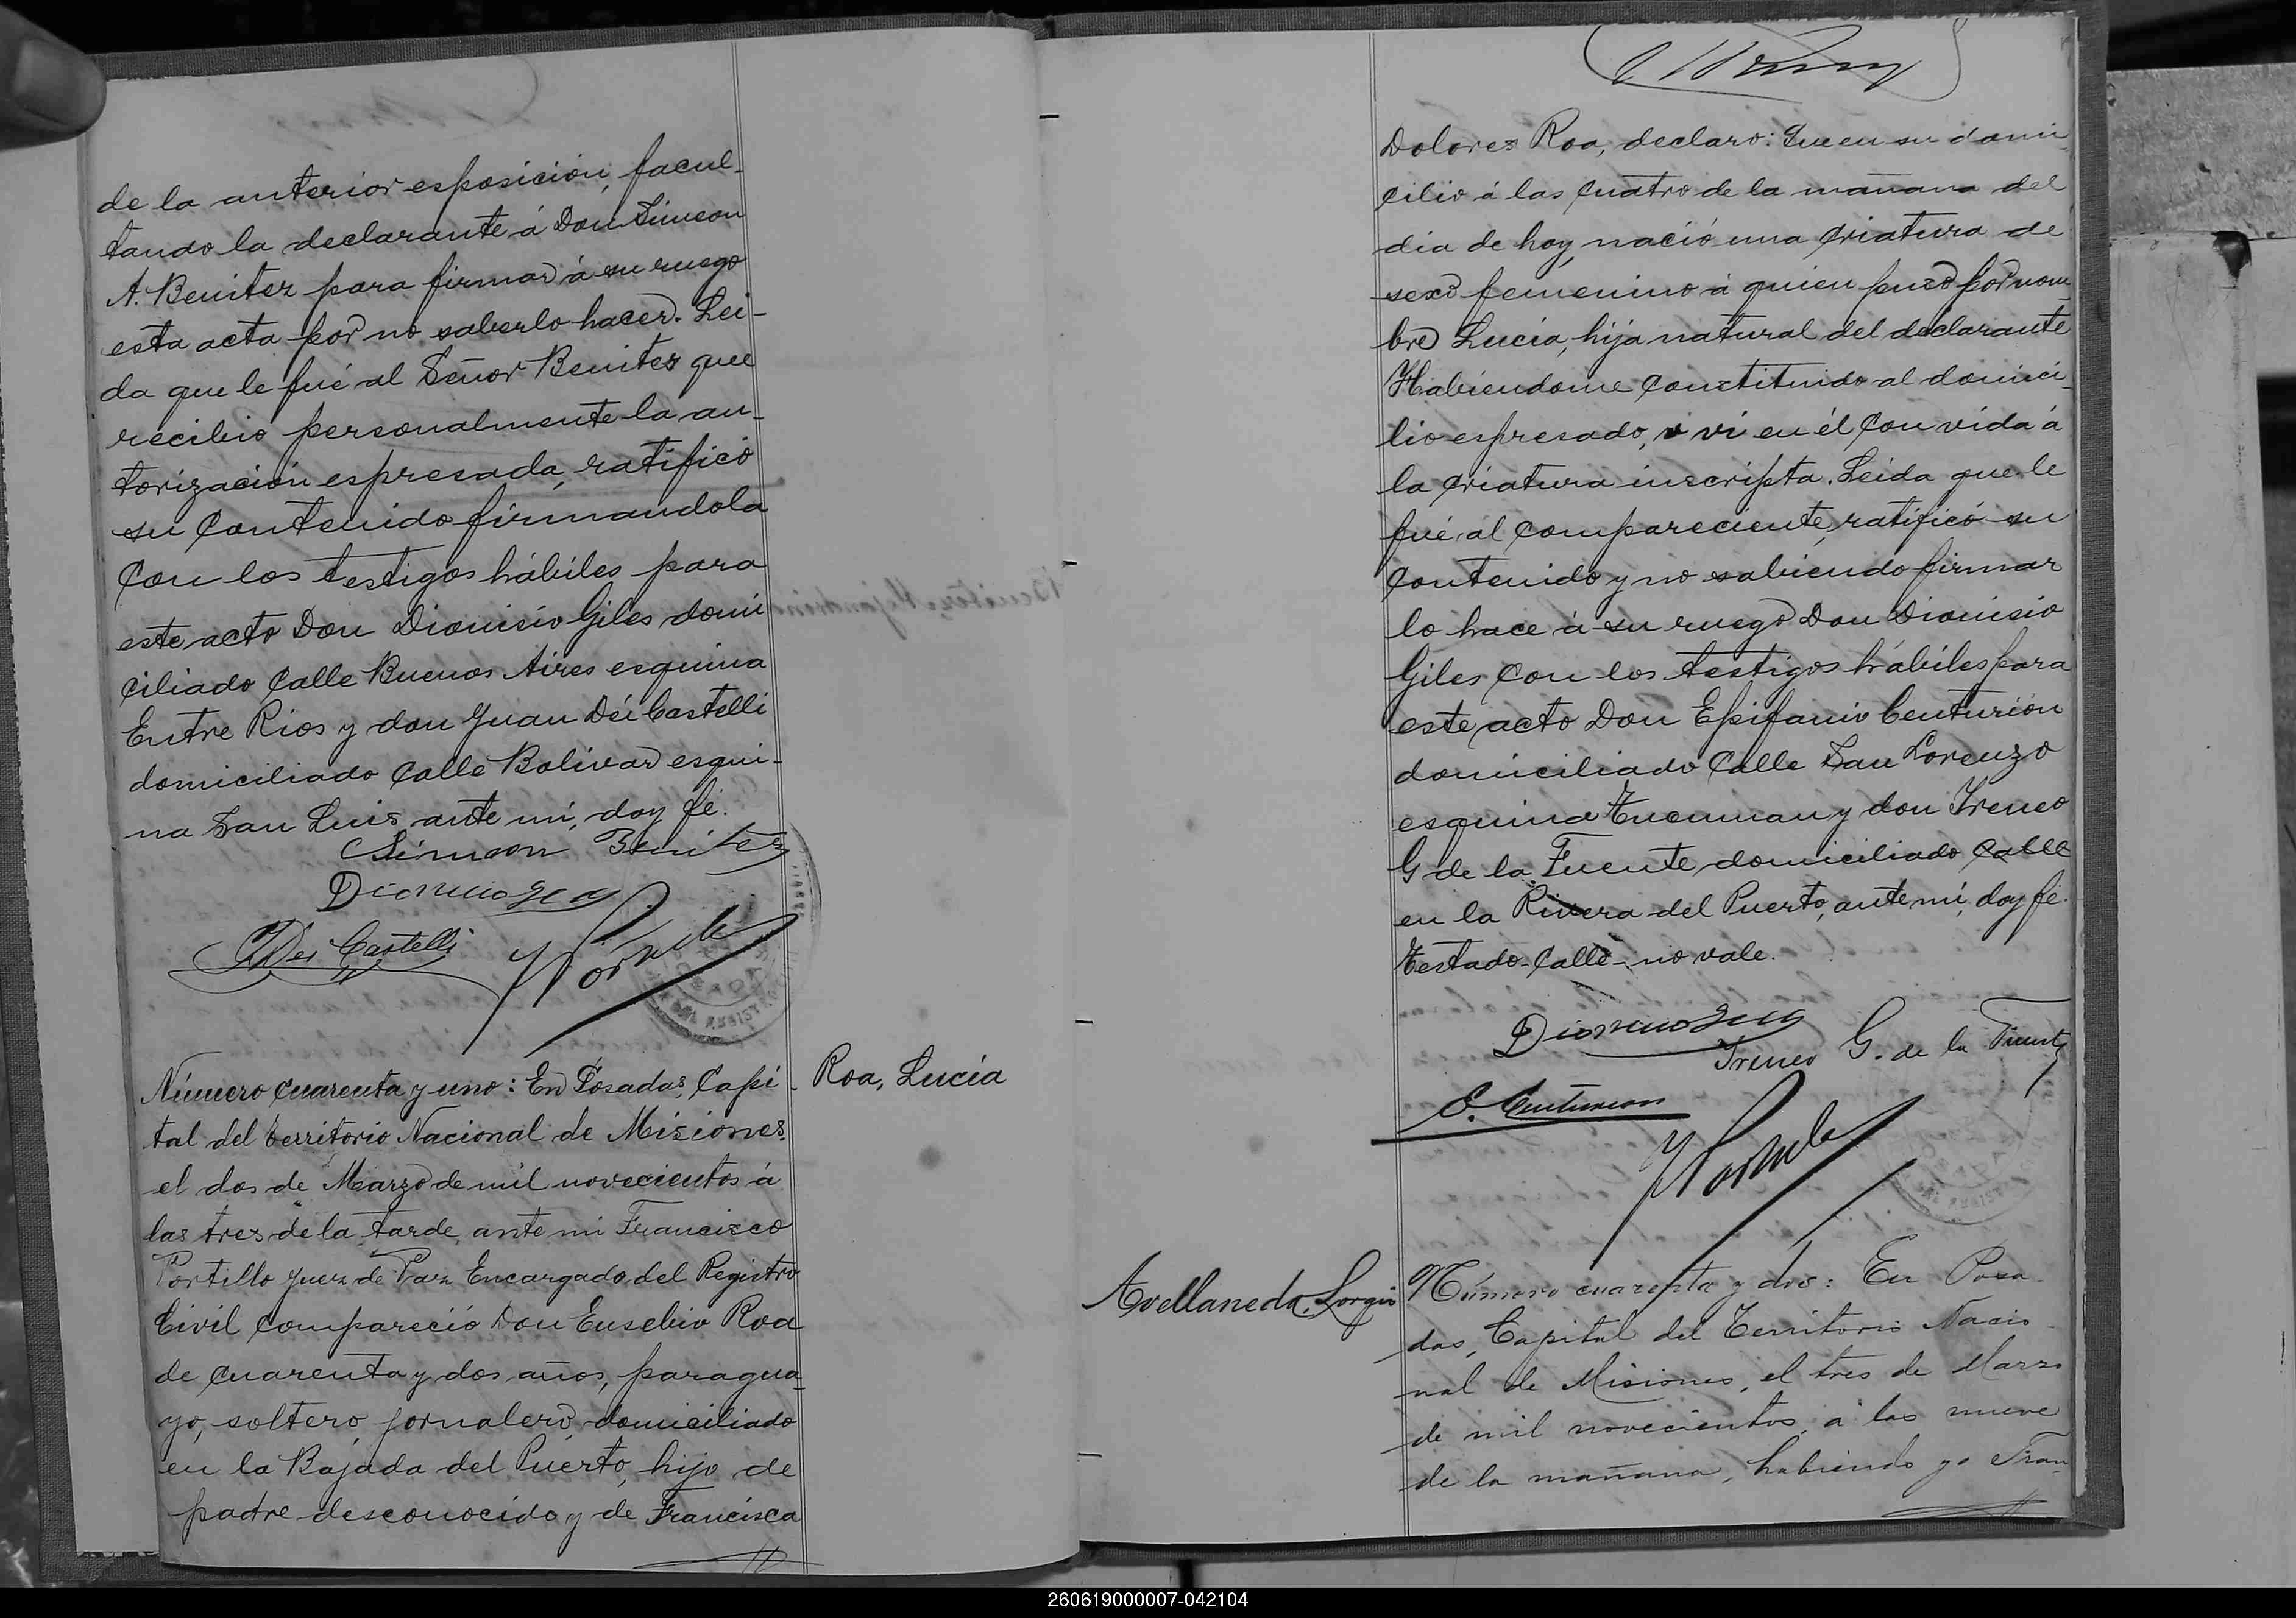 de la anterior esposición, facul-
tando la declarante á Don Simeon
A. Benitez para firmar á su ruego
esta acta por no saberlo hacer. Lei-
da que le fué al Señor Benitez que
recibió personalmente la au-
torización espresada, ratificó
su contenido firmandola
con los testigos hábiles para
este acto Don Dionisio Giles domi
ciliado Calle Buenos Aires esquina
Entre Rios y don Juan Déi Castelli
domiciliado Calle Bolivar esqui-
na San Luis, ante mí, doy fé.
Simeon Benitez
J Dei Castelli
Número cuarenta y uno: En Posadas, Capi-
tal del Territorio Nacional de Misiones,
el dos de Marzo de mil novecientos á
las tres de la tarde, ante mi Francisco
Portillo Juez de Paz Encargado del Registro
Civil compareció Don Eusebio Roa
de cuarenta y dos años, paragua-
yo, soltero, jornalero, domiciliado
en la Bajada del Puerto, hijo de
padre desconocido y de Francisca
Roa, Lucía
Dolores Roa, declaro: Que en su domi-
cilio á las cuatro de la mañana del
dia de hoy, nació una criatura de
sexo femenino á quien puso por nom-
bre Lucía, hija natural del declarante
Habiendome constituido al domici-
lio espresado, vi en él con vida á
la criatura inscripta. Leida que le
fué al compareciente, ratificó su
contenido y no sabiendo firmar
lo hace á su ruego Don Dionisio
Giles con los testigos hábiles para
este acto Don Epifanio Centurión
domiciliado Calle San Lorenzo
esquina Tucuman y don Ireneo
G de la Fuente domiciliado Calle
en la Rivera del Puerto, ante mí, doy fé.
Testado-Calle-no vale.
Ireneo G. de la Fuente
E. Centurion
Avellaneda, Lorgio
Número cuarenta y dos: En Posa-
das, Capital del Territorio Nacio-
nal de Misiones, el tres de Marzo
de mil novecientos, á las nueve
de la mañana, habiendo yo Fran-
260619000007-042104